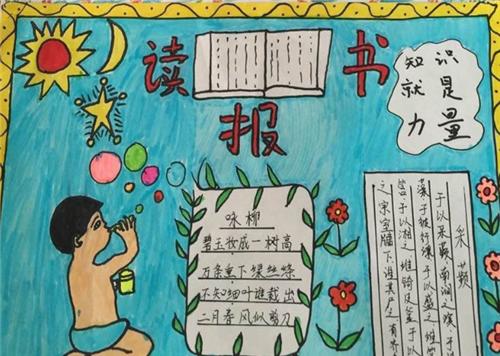 读书
报
知识
就是
力量
咏柳
碧玉妆底一树高
万条垂下绿丝绦
不知细叶谁裁出
二月春风似剪刀
采蘋
于以采蘋南涧之滨于
藻于彼行潦于以盛之维
筥于以湘之维锜及釜于
之宗室牖下谁其尸之有齐